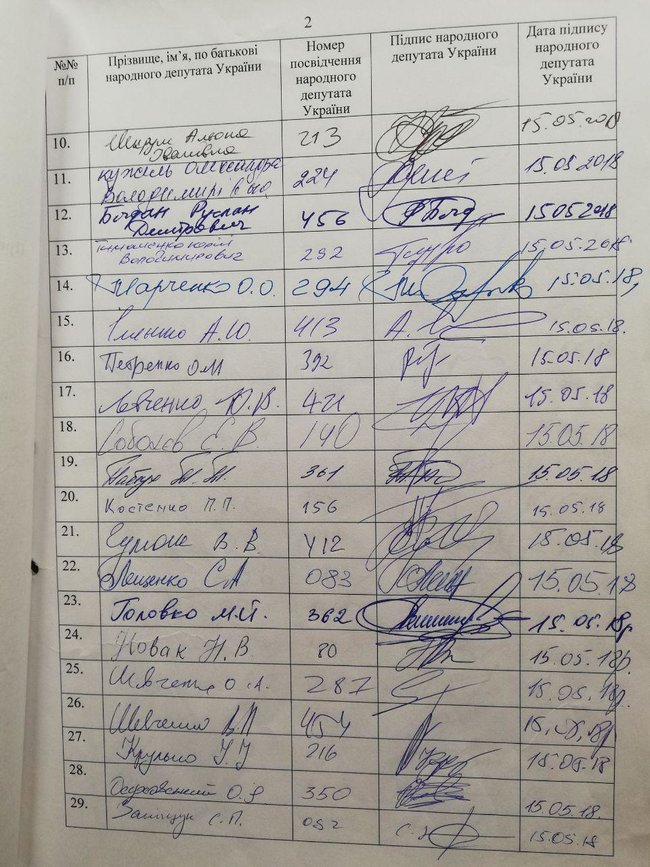 2
№№ п/п Прізвище, ім’я, по батькові народного депутата України Номер посвідчення народного депутата України Підпис народного депутата України Дата підпису народного депутата України
10. Шкрум Альона Іванівна 213 15.05.2018
11. Кужель Олександра Володимирівна 224 15.05.2018
12. Богдан Руслан Дмитрович 456 15.05 2018
13. Тимошенко Юрій Володимирович 292 15.05.2018
14. Марченко О.О. 294 15.05.18,
15. Ільєнко А.Ю. 413 15.05.18.
16. Петренко О.М 392 15.05.18
17. Левченко Ю.В. 421 15.05.18
18. Соболєв Є.В. 140 15.05.18
19. 361 15.05.18
20. Костенко П.П. 156 15.05.18
21. В.В. 412 15.05.18
22. Лещенко С.А 083 15.05.18
23. Головко М.Й. 362 15.05.18р
24. Новак Н.В 80 15.05.18р.
25. Шевченко О.Л. 287 15.05.18р
26. Шевченко В.Л 454
27. Крулько І.І 216 15.05.18
28. О.Я 350 15.05.18.
29. Заліщук С.П. 052 15.05.18